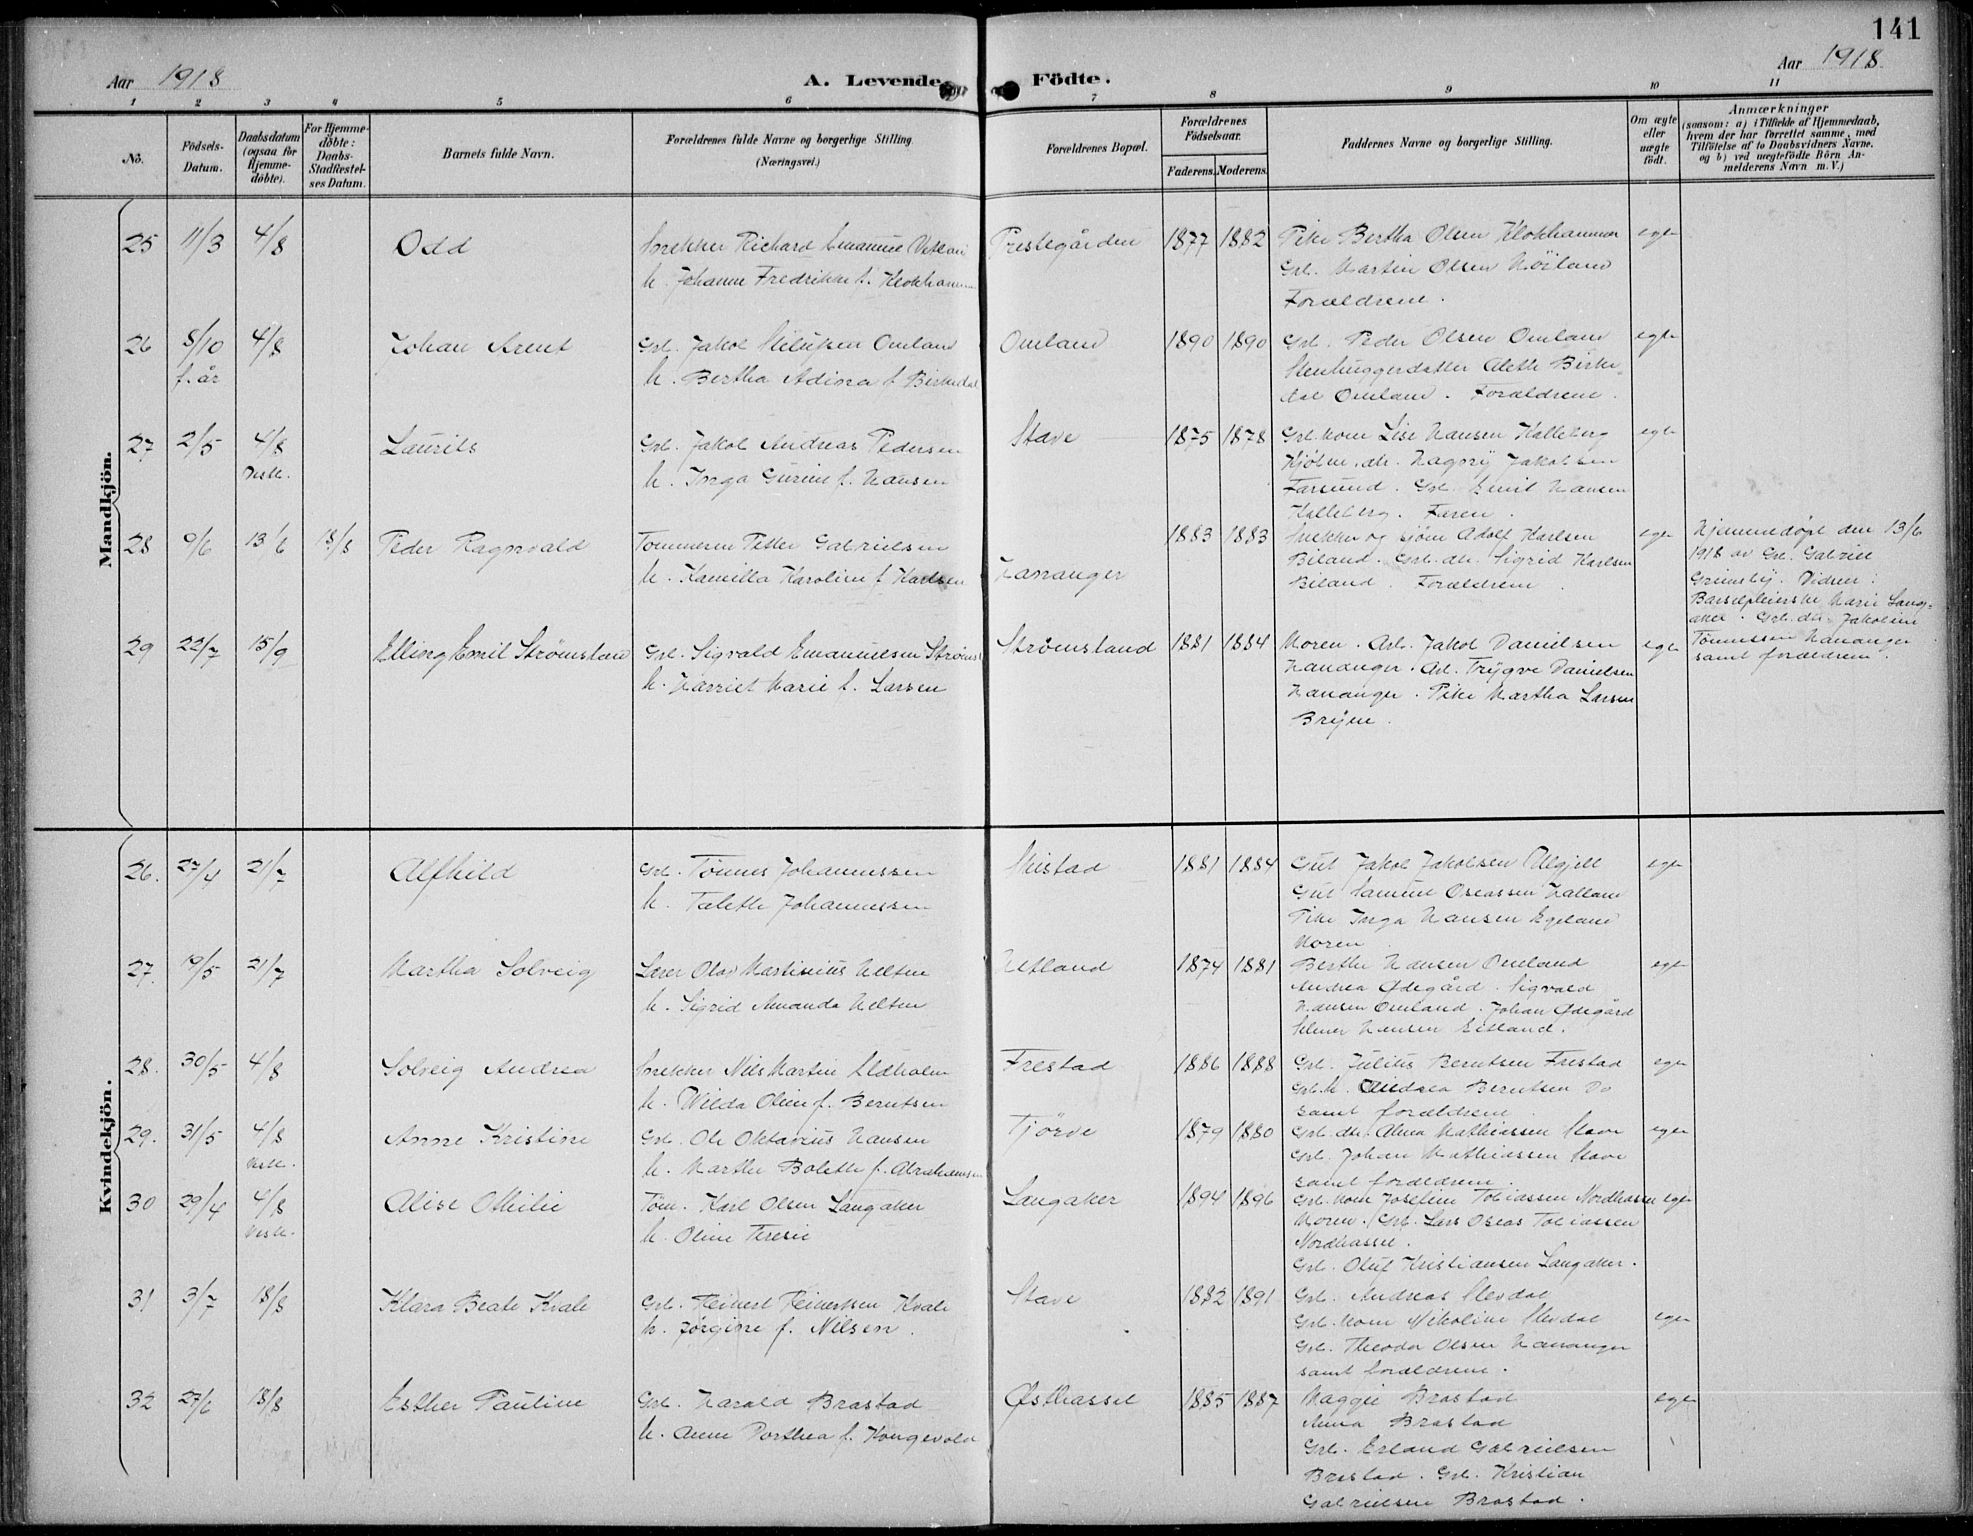 141
Aar 1918
A. Levende Födte.
Aar 1918.
1 2 3 4 5 6 7 8 9 10 11
No.
Födsels-
Datum.
Daabsdatum
(ogsaa for
Hjemme-
döbte).
For Hjemme-
döbte:
Daabs-
Stadfæstel-
ses Datum.
Barnets fulde Navn.
Forældrenes fulde Navne og borgerlige Stilling
(Næringsvei.)
Forældrenes Bopæl.
Forældrenes
Födselsaar.
Faderens. Moderens.
Faddernes Navne og borgerlige Stilling.
Om ægte
eller
uægte
födt.
Anmærkninger
(saasom: a) i Tilfælde af Hjemmedaab,
hvem der har forrettet samme, med
Tilföielse af to Daabsvidners Navne,
og b) ved uægtefödte Börn An-
melderens Navn m.V.)
Mandkjön.
25 11/3 4/8 Odd
Snekker Richard Emanuel
h. Johanne Fredrikke f. Klokhammer
Prestegården 1877 1882
Pike Bertha Olsen Klokhammer
Grb. Martin Olsen Nöiland
Forældrene.
egte
26 8/10 4/8 Johan Arent
f. år
Grb. Jakob Omland
h. Bertha Adina f. Birkedal
Omland 1890 1890
Grb. Peder Olsen Omland
Stenhuggerdatter Aleth Birke-
dal Omland. Forældrene.
egte
27 2/5 4/8 Laurits
Vestb.
Grb. Jakob Andreas Pedersen
h. Inga Gurine f. Hansen
Stave 1875 1878
Grb. kone Lise Hansen Kalleberg
Kjöbm. dtr. Jakobsen
Farsund. Grb. Emil Hansen
Kalleberg. Faren.
egte
28 9/6 13/6 18/8 Peder Ragnvald
Tömmerm Petter Gabrielsen
h. Kamilla Karoline f. Karlsen
Hananger
1883 1883
Snekker og sjöm Adolf Karlsen
Biland. Grb. dtr. Sigrid Karlsen
Biland. Forældrene
egte
Hjemmedøpt den 13/6
1918 av Grb. Gabriel
Grimsby. Vidner:
Barselpleierske Marie Lang-
aker. Grb. dtr. Jakobine
Tönnessen Hananger
samt forældrene.
29 22/7 15/9 Elling Emil Strömsland
Grb. Sigvald Emanuelsen Strömsl
h. Harriet Marie f. Larsen
Strömsland 1881 1884
Moren. Arb. Jakob Danielsen
Hananger Arb. Trygve Danielsen
Hananger. Pike Martha Larsen
Bryne.
egte
Kvindekjön.
26. 27/4 21/7 Alfhild
Grb. Tönnes Johannessen
h. Talette Johannessen
Skistad 1881 1884
Gut Jakob Jakobsen Ullgjell
Gut Samuel Oseassen Halland
Pike Inga Hansen Egeland
Moren
egte
27. 19/5 21/7 Martha Solveig
Lærer Olav Martinius Ueltun
h. Sigrid Amanda Ueltun
Uetland 1874 1881
Berthe Hansen Omland
Andrea Ødegård. Sigvald
Hansen Omland. Johan Ødegård
Hansen Eitland.
egte
28. 30/5 4/8 Solveig Andrea
Snekker Nils Martin Lidholm
h. Wilda Oline f. Berntsen
Frestad 1886 1888
Grb. Julius Berntsen Frestad
Grb. h. Andrea Berntsen Do
samt forældrene.
egte
29. 31/5 4/8 Anne Kristine
Vestb.
Grb. Ole Oktavius Hansen
h. Marthe Bolette f. Abrahamsen
Tjörve 1879 1880
Grb. dtr. Alma Mathiassen Stave
Grb. Johan Mathiassen Stave
samt forældrene.
egte
30 29/4 4/8 Alise Othilie
Vestb.
Töm. Karl Olsen Langaker
h. Oline Teresie
Langaker 1894 1896
Grb. kone Josefine Tobiassen Nordhassel
Moren. Grb. Lars Oseas Tobiassen
Nordhassel.
Grb. Oluf Kristiansen Langaker.
egte
31 3/7 18/8 Klara Beate Kvale
Grb. Reinert Reinertsen Kvale
h. Jörgine f. Nilsen.
Stave 1882 1891
Grb. Andreas Slevdal
Grb. kone Nikoline Slevdal
Grb. Theodor Olsen Hananger
samt forældrene.
egte
32 27/6 18/8 Esther Pauline
Grb. Harald Brastad
h. Anne Dorthea f. Kongevold
Østhassel 1885 1887
Maggie Brastad
Anna Brastad
Grb. Erland Gabrielsen
Brastad. Grb. Kristian
Gabrielsen Brastad.
egte